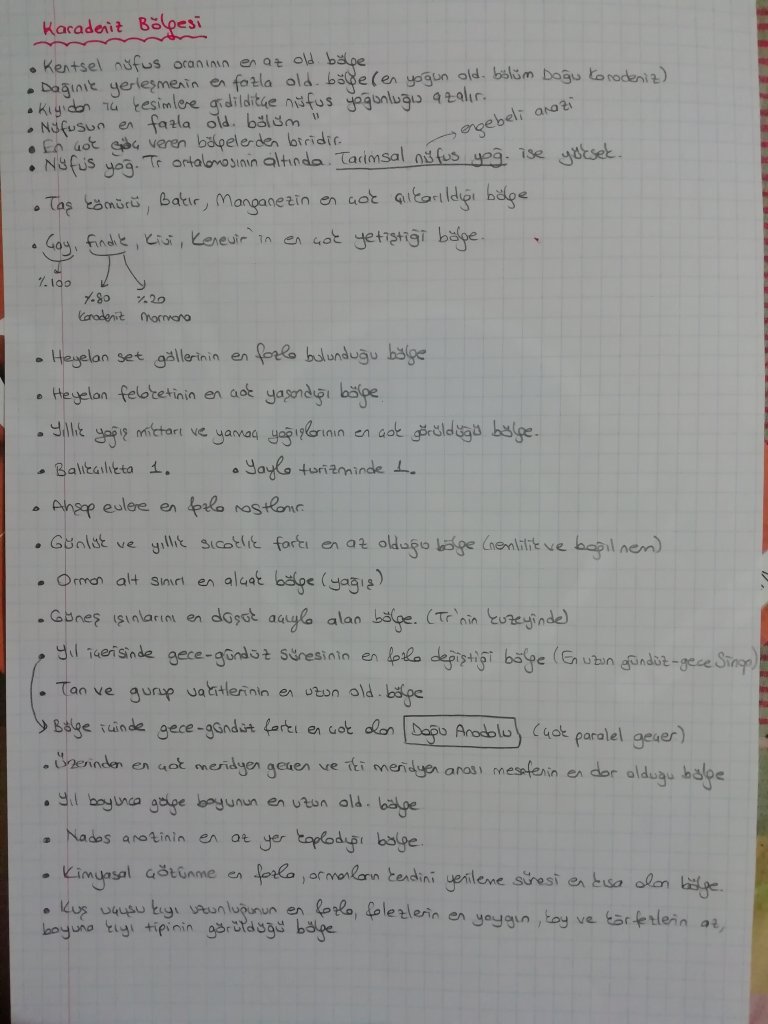 Karadeniz Bölgesi
• Kentsel nüfus oranının en az old. bölge
• Dağınık yerleşmenin en fazla old. bölge (en yoğun old. bölüm Doğu Karadeniz)
• Kıyıdan iç kesimlere gidildikçe nüfus yoğunluğu azalır.
• Nüfusun en fazla old. bölüm "
→ engebeli arazi
• En çok göç veren bölgelerden biridir.
• Nüfus yoğ. Tr ortalamasının altında. Tarımsal nüfus yoğ. ise yüksek.
• Taş kömürü, Bakır, Manganezin en çok çıkarıldığı bölge
• Çay, fındık, kivi, Kenevir'in en çok yetiştiği bölge.
%100
%80 %20
Karadeniz Marmara
• Heyelan set göllerinin en fazla bulunduğu bölge
• Heyelan felaketinin en çok yaşandığı bölge
• Yıllık yağış miktarı ve yamaç yağışlarının en çok görüldüğü bölge.
• Balıkçılıkta 1. • Yayla turizminde 1.
• Ahşap evlere en fazla rastlanır.
• Günlük ve yıllık sıcaklık farkı en az olduğu bölge (nemlilik ve bağıl nem)
• Orman alt sınırı en alçak bölge (yağış)
• Güneş ışınlarını en düşük açıyla alan bölge. (Tr'nin kuzeyinde)
• Yıl içerisinde gece-gündüz süresinin en fazla değiştiği bölge (En uzun gündüz-gece Sinop)
• Tan ve gurup vakitlerinin en uzun old. bölge
Bölge içinde gece-gündüz farkı en çok olan Doğu Anadolu (çok paralel geçer)
• Üzerinden en çok meridyen geçen ve iki meridyen arası mesafenin en dar olduğu bölge
• Yıl boyunca gölge boyunun en uzun old. bölge
• Nadas arazinin en az yer kapladığı bölge.
• Kimyasal çözünme en fazla, ormanların kendini yenileme süresi en kısa olan bölge.
• Kuş uçuşu kıyı uzunluğunun en fazla, falezlerin en yaygın, koy ve körfezlerin az,
boyuna kıyı tipinin görüldüğü bölge